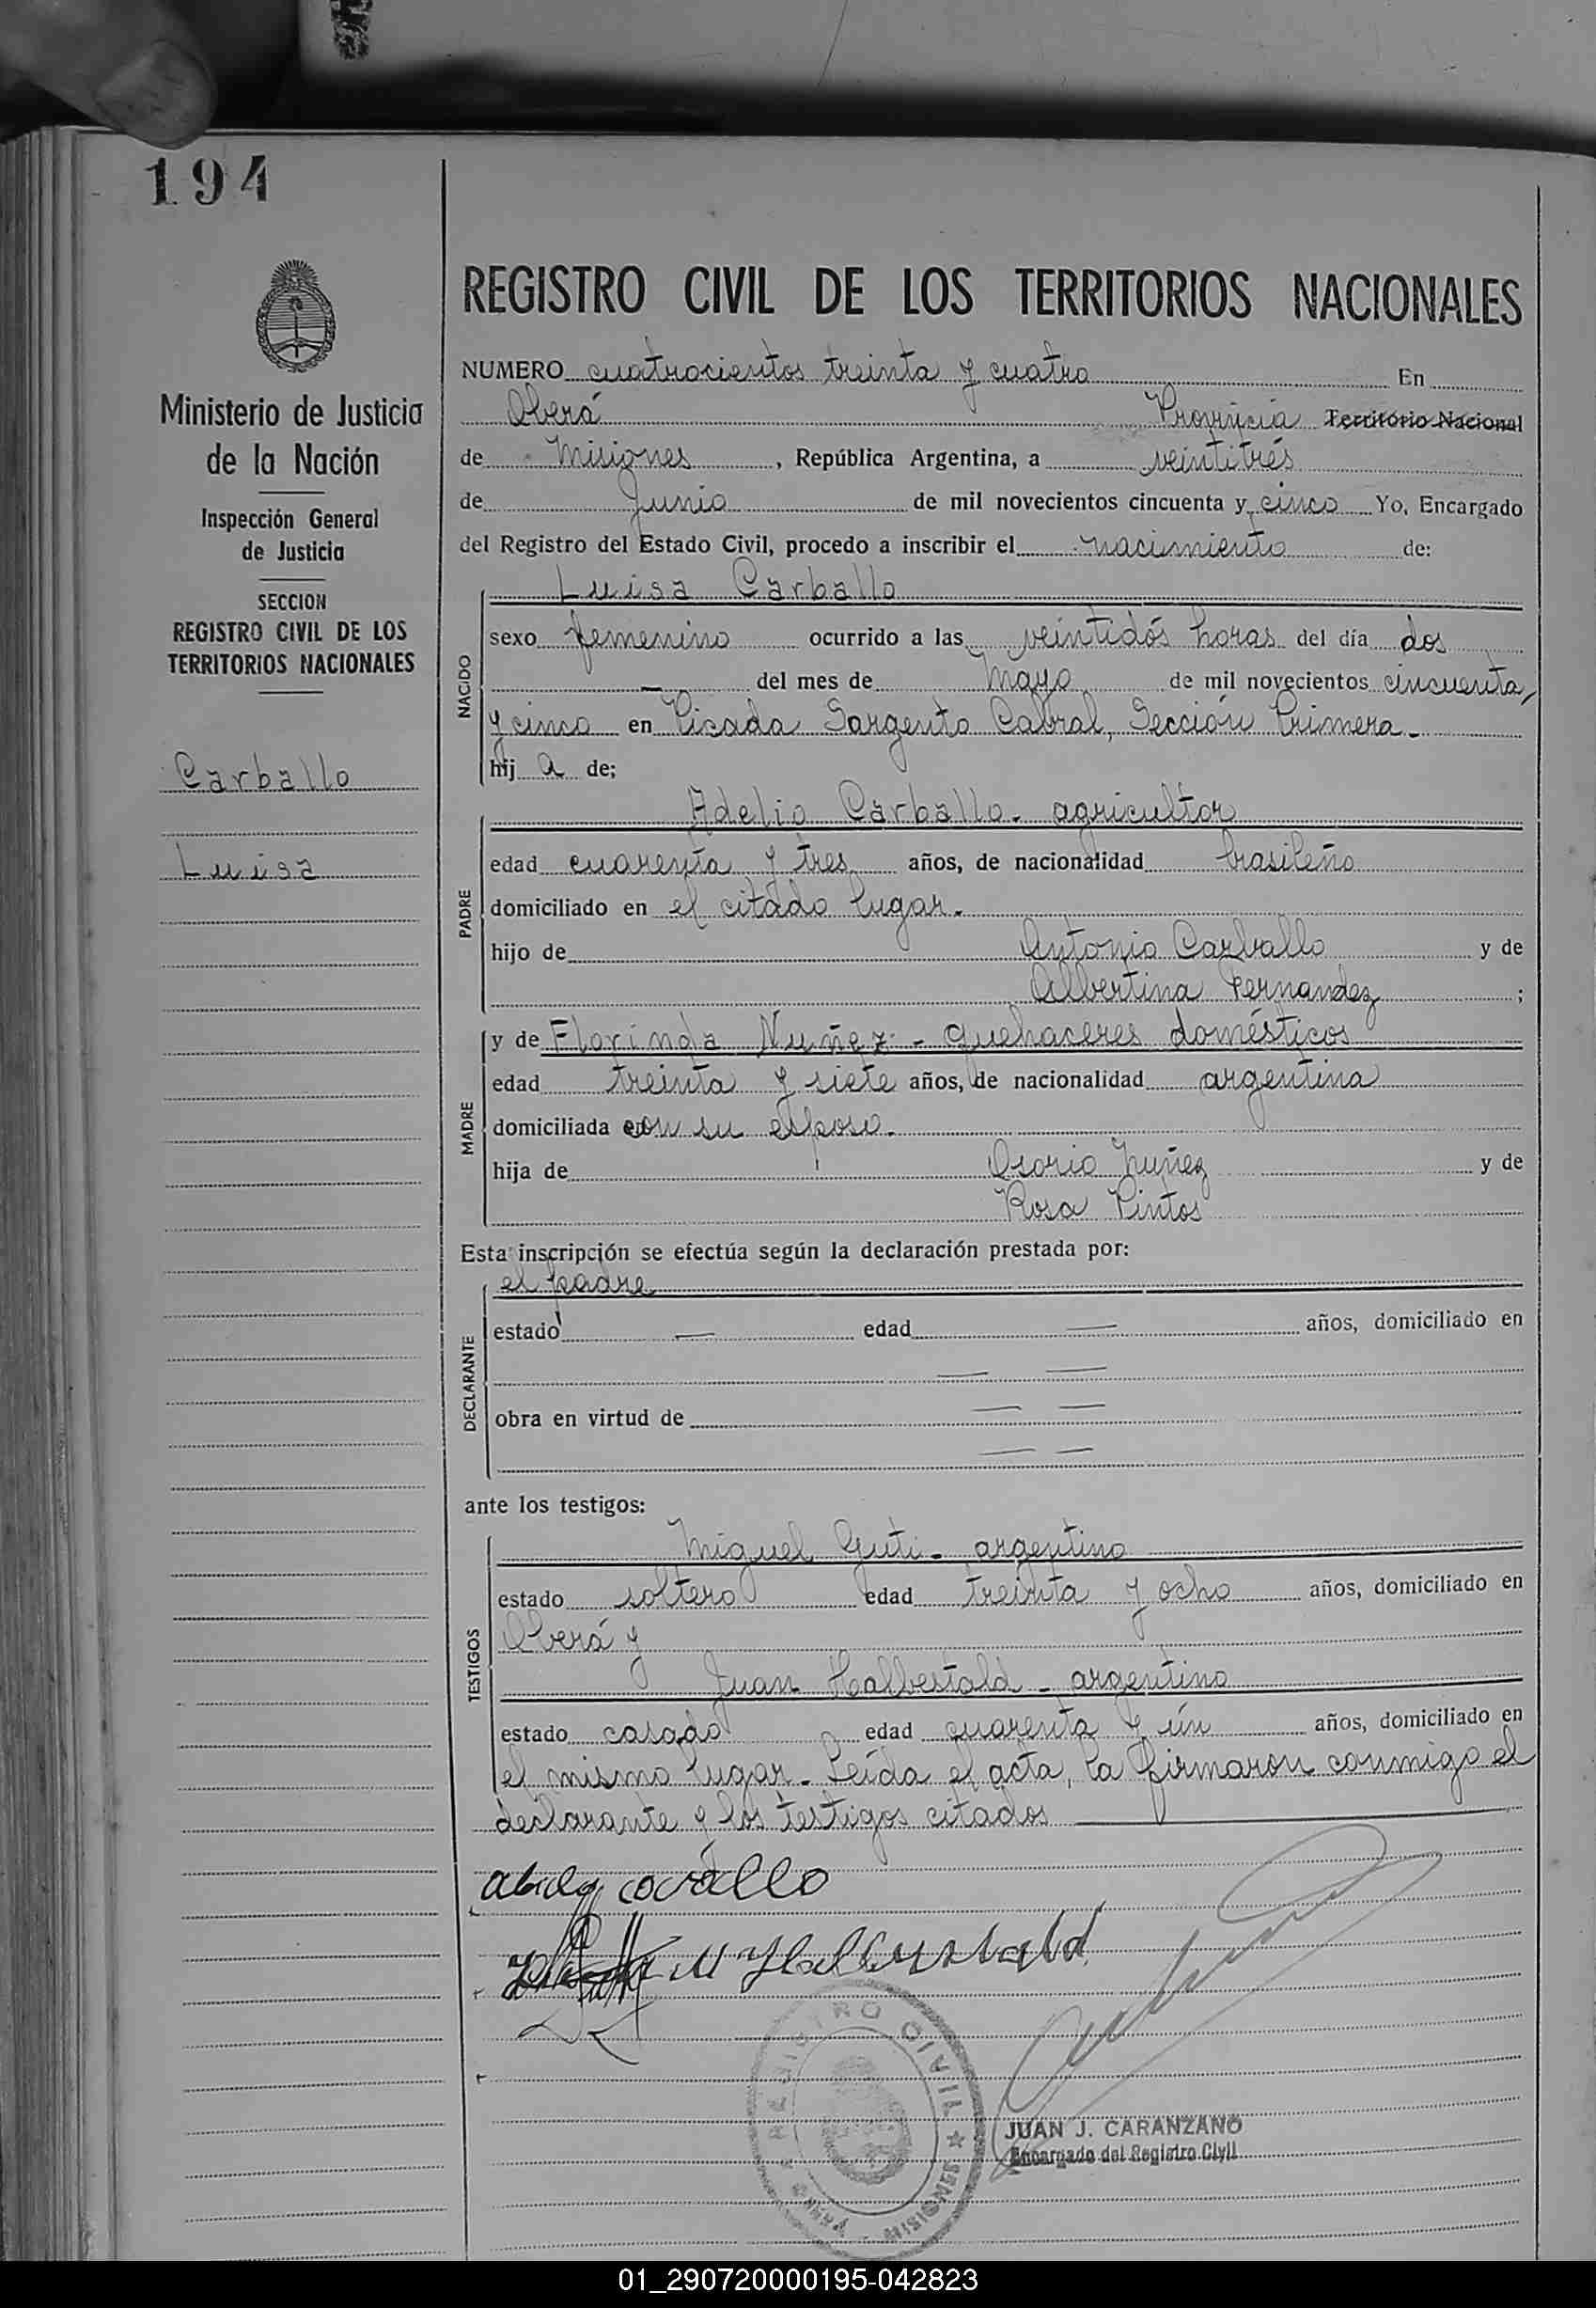 194
REGISTRO CIVIL DE LOS TERRITORIOS NACIONALES
Ministerio de Justicia
de la Nación
Inspección General
de Justicia
SECCION
REGISTRO CIVIL DE LOS
TERRITORIOS NACIONALES
Carballo
Luisa
NUMERO cuatrocientos treinta y cuatro En
Oberá Provincia Territorio Nacional
de Misiones, República Argentina, a veintitrés
de Junio de mil novecientos cincuenta y cinco Yo, Encargado
del Registro del Estado Civil, procedo a inscribir el nacimiento de:
NACIDO
Luisa Carballo
sexo femenino ocurrido a las veintidós horas del día dos
— del mes de Mayo de mil novecientos cincuenta
y cinco en Picada Sargento Cabral, Sección Primera.-
hij a de;
PADRE
Adelio Carballo.- agricultor
edad cuarenta y tres años, de nacionalidad brasileño
domiciliado en el citado lugar.-
hijo de Antonio Carballo y de
Albertina Fernandez ;
MADRE
y de Florinda Nuñez - quehaceres domésticos
edad treinta y siete años, de nacionalidad argentina
domiciliada con su esposo.
hija de Osorio Nuñez y de
Rosa Pintos
Esta inscripción se efectúa según la declaración prestada por:
DECLARANTE
el padre
estado — edad — años, domiciliado en
— —
obra en virtud de — —
— —
ante los testigos:
TESTIGOS
Miguel Guti - argentino
estado soltero edad treinta y ocho años, domiciliado en
Oberá y
Juan Halbestald - argentino
estado casado edad cuarenta y ún años, domiciliado en
el mismo lugar.- Leída el acta, la firmaron conmigo el
declarante y los testigos citados
REGISTRO CIVIL ★ MISIONES
OBERA
JUAN J. CARANZANO
Encargado del Registro Civil
01_290720000195-042823